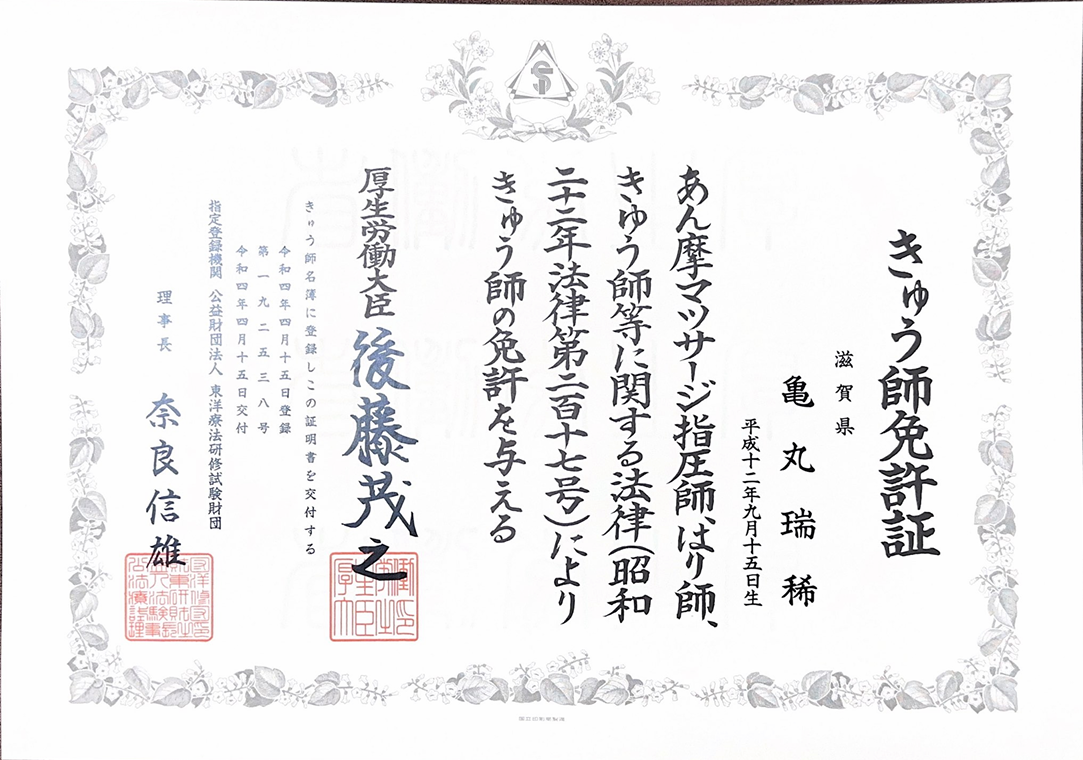 きゅう師免許証
滋賀県
亀丸瑞稀
平成十二年九月十五日生
あん摩マツサージ指圧師、はり師、
きゆう師等に関する法律(昭和
二十二年法律第二百十七号)により
きゅう師の免許を与える
厚生労働大臣 後藤茂之
きゅう師名簿に登録しこの証明書を交付する
令和四年四月十五日登録
第一九二五三八号
令和四年四月十五日交付
指定登録機関 公益財団法人 東洋療法研修試験財団
理事長 奈良信雄